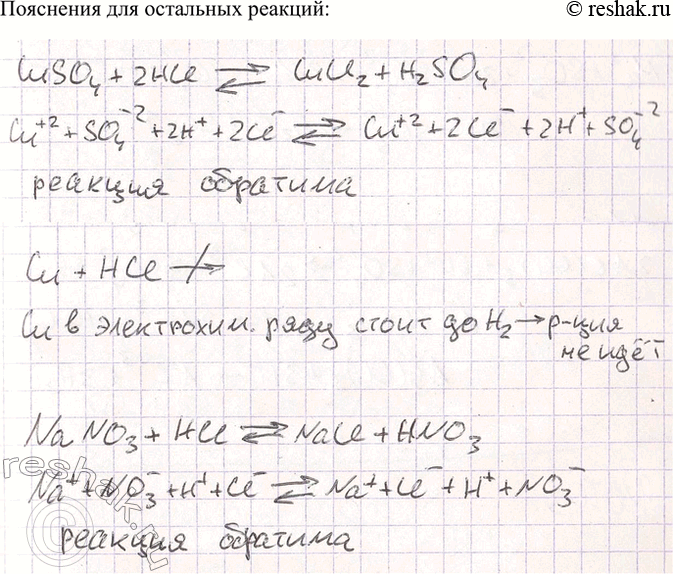 Пояснения для остальных реакций:
© reshak.ru
CuSO₄ + 2HCl ⇌ CuCl₂ + H₂SO₄
Cu⁺² + SO₄⁻² + 2H⁺ + 2Cl⁻ ⇌ Cu⁺² + 2Cl⁻ + 2H⁺ + SO₄⁻²
реакция обратима
Cu + HCl ↛
Cu в электрохим. ряду стоит до H₂ → р-ция
не идёт
NaNO₃ + HCl ⇌ NaCl + HNO₃
Na⁺ + NO₃⁻ + H⁺ + Cl⁻ ⇌ Na⁺ + Cl⁻ + H⁺ + NO₃⁻
реакция обратима
© reshak.ru